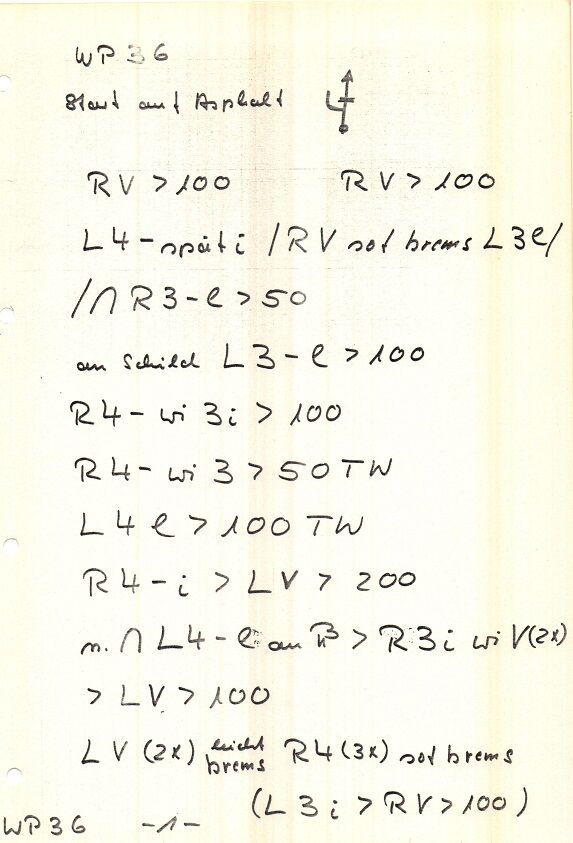 WP 36
Start auf Asphalt
RV > 100 RV > 100
L4 - spät i /RV sof brems L3e/
/∩ R3-e > 50
am Schild L3-e > 100
R4 - wi 3i > 100
R4 - wi 3 > 50 TW
L4 e > 100 TW
R4 - i > LV > 200
n. ∩ L4 - e am > R3i wi V(2x)
> LV > 100
LV (2x) leicht brems R4 (3x) sof brems
(L3i > RV > 100)
WP36 -1-